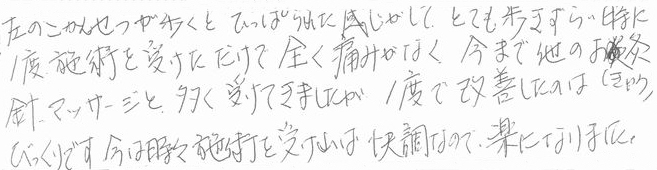 左のこかんせつが歩くと ひっぱられた感じがして、とても歩きずらい時に
1度施術を受けただけで 全く痛みがなく 今まで他のお灸
針、マッサージと、多く受けてきましたが 1度で改善したのは(きゅう)
びっくりです 今は時々施術を受ければ 快調なので、楽になりました。